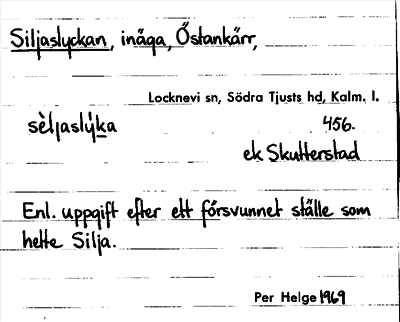 Siljaslyckan, inäga, Östankärr,
Locknevi sn, Södra Tjusts hd, Kalm. l.
sèljaslýka 456.
ek Skutterstad
Enl. uppgift efter ett försvunnet ställe som
hette Silja.
Per Helge 1969